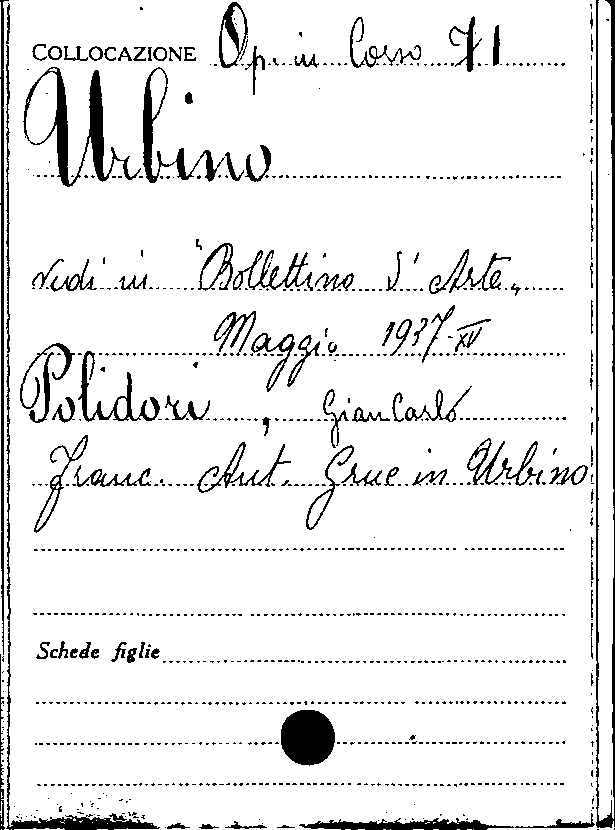 COLLOCAZIONE Op. in Corso 71
Urbino
vedi in "Bollettino d'Arte„
Maggio 1937-XV
Polidori, GianCarlo
Franc. Ant. Grue in Urbino
Schede figlie